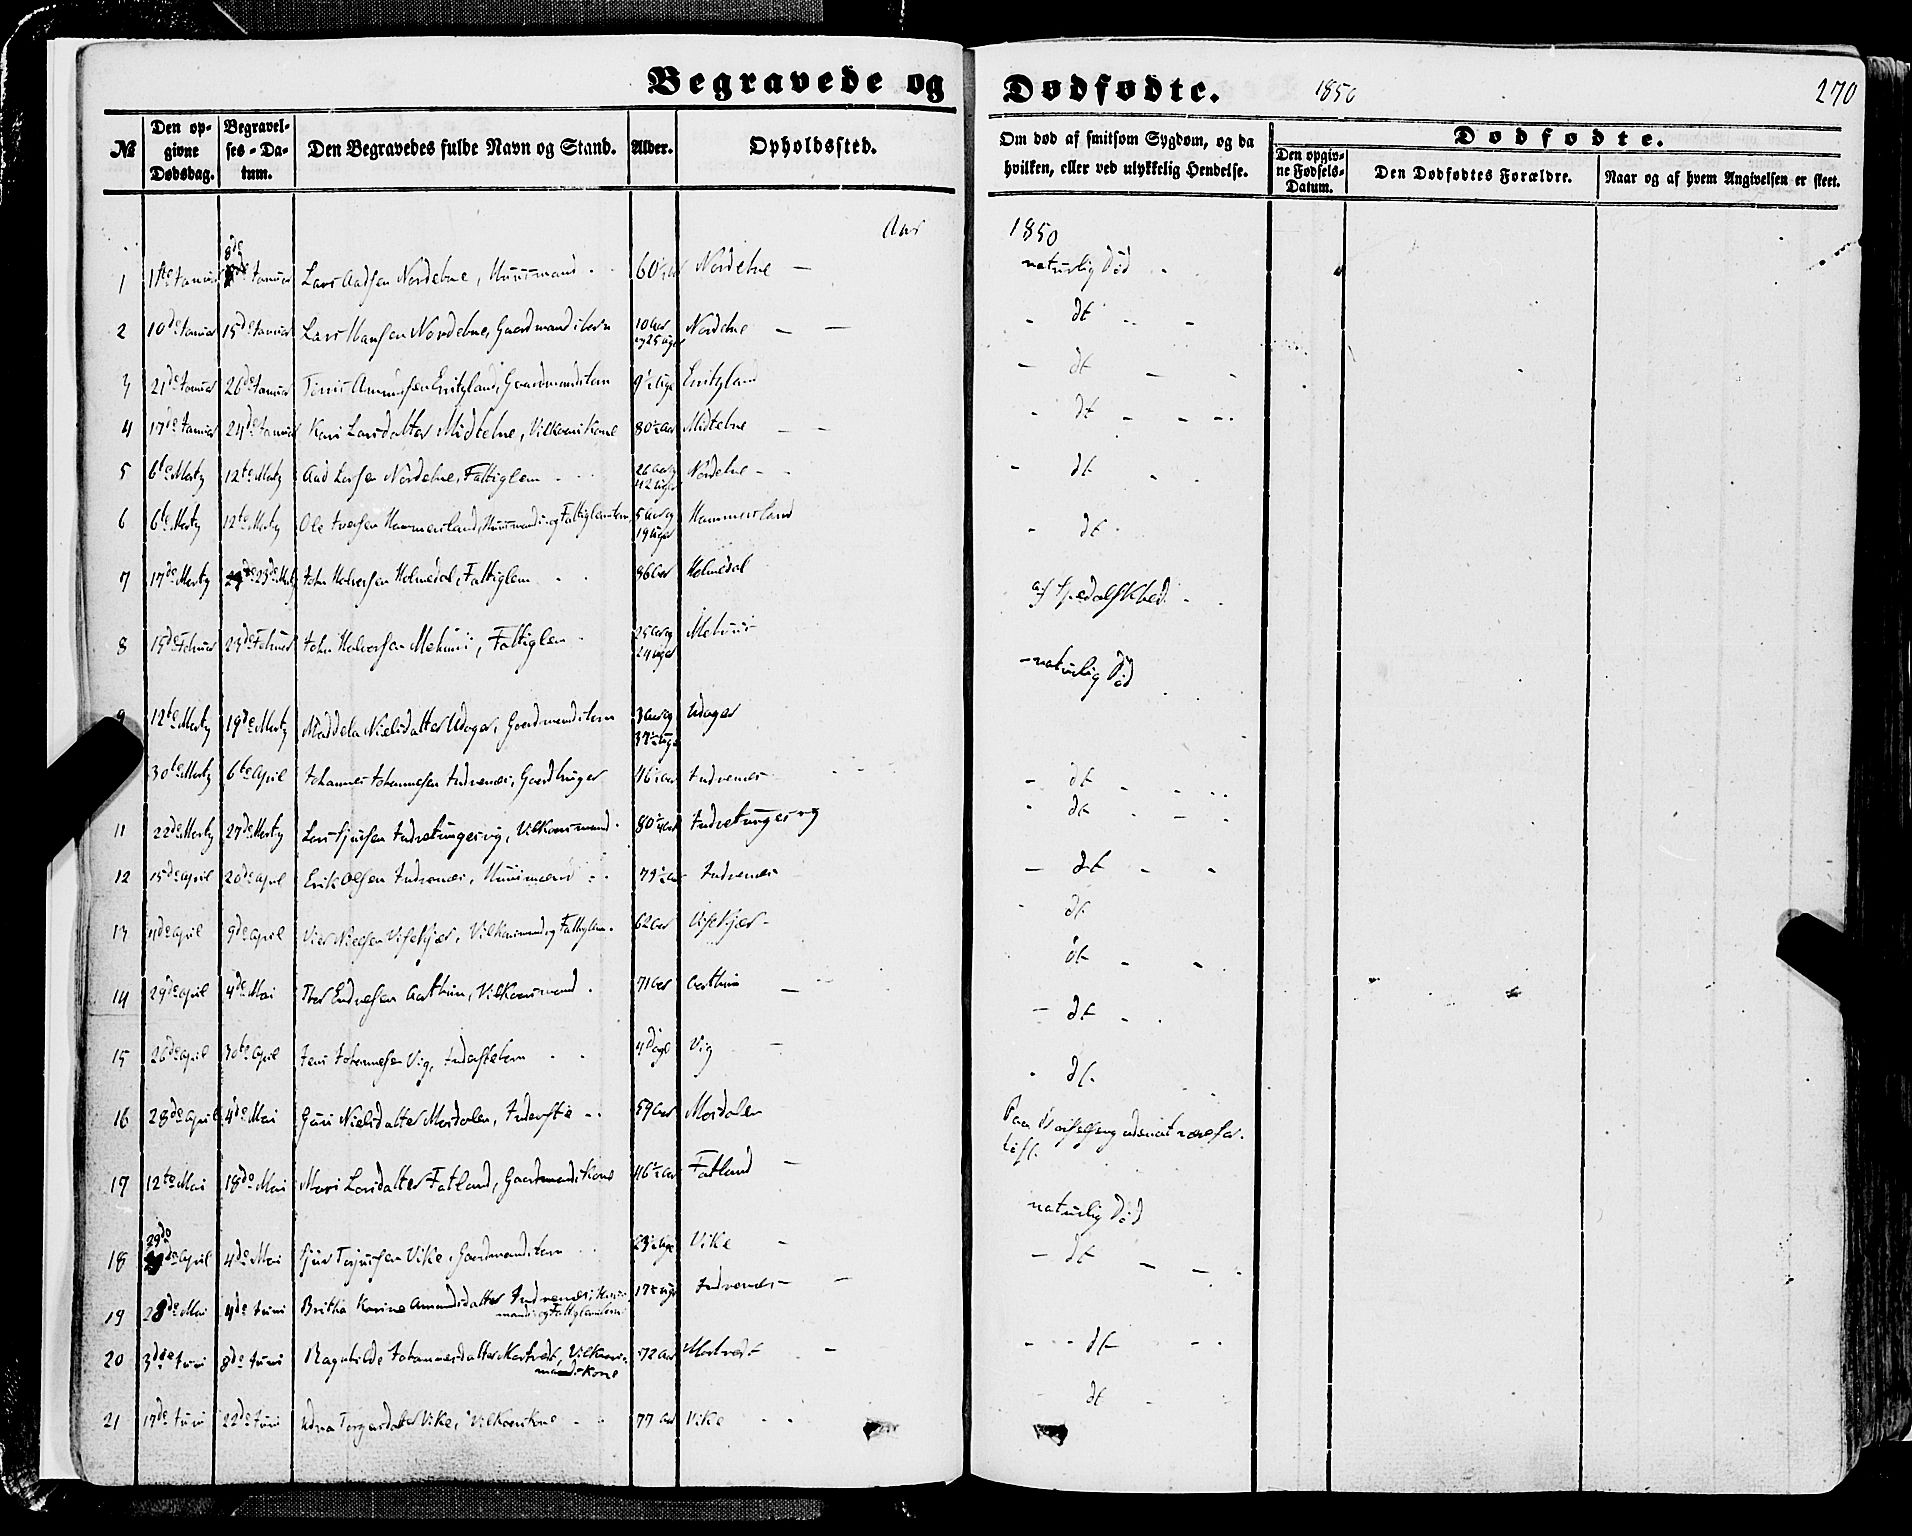 Begravede og Dødfødte. 1850 270
№ Den opgivne Dødsdag. Begravelses-Datum. Den Begravedes fulde Navn og Stand. Alder. Opholdssted.
Om død af smitsom Sygdom, og da hvilken, eller ved ulykkelig Hendelse.
Dødfødte.
Den opgivne Fødsels-Datum. Den Dødfødtes Forældre. Naar og af hvem Angivelsen er skeet.
Aar 1850
1 1ste Januar 8de Januar Lars Aadsen Nordebne, Huusmand 60½ Aar Nordebne — naturlig Død
2 10de Januar 15de Januar Lars Hansen Nordebne, Gaardmands barn 10 Aar og 25 Uger Nordebne — dt
3 21de Januar 26de Januar Gaardmands barn 9½ Uge dt
4 17de Januar 24de Januar Kari Larsdatter Midtebne, Vilkaars Kone 80½ Aar Midtebne — dt
5 6te Martz 12te Martz Aad Larsen Nordebne, Fattiglem 26 Aar og Nordebne dt
6 6te Martz 12te Martz Ole Iversen Hammersland, Huusmands og Fattiglems barn 5 Aar og 19 Uger Hammersland dt
7 17de Martz 23de Martz John Halvorsen Holmedal, Fattiglem 86 Aar Holmedal
8 15de Februar 23de Februar John Halvorsen Mehuus, Fattiglem 25 Aar og 24 Uger Mehuus af Spedalskhed
9 12te Martz 19de Martz Maddela Nielsdatter Udager, Gaardmands barn 3 Aar og 37½ Uge Udager naturlig Død
30te Martz 6te April Johannes Johannesen Indrenæs, Gaardbruger 46½ Aar Indrenæs dt
11 22de Martz 27de Martz Lars Sjursen Indretungesvig, Vilkaarsmand 80¼ Aar Indretungesvig dt
12 15de April 20de April Erik Olsen Indrenæs, Huusmand 79½ Aar Indrenæs dt
13 4de April 9de April Nielsen Vilkaarsmand og Fattiglem 62 Aar dt
14 29de April 4de Mai Thor Endresen Aarthun, Vilkaarsmand 71 Aar Aarthun dt
15 26de April 30te April Jens Johannesen Vig, Inderstebarn 4 Dage Vig dt
16 28de April 4de Mai Guri Nielsdatter Mosdalen, Inderste 59 Aar Mosdalen dt
17 12te Mai 18de Mai Mari Larsdatter Fatland, Gaardmands Kone 46½ Aar Fatland — Paa Barselseng
18 29de April 4de Mai Sjur Torjusen Vike, Gaardmands barn 23½ Uge Vike — naturlig Død
19 28de Mai 4de Juni Britha Karine Amundsdatter Indrenæs, Huusmands og Fattiglems barn 17½ Uge Indrenæs — dt
20 3die Juni 8de Juni Ragnhilde Johannesdatter Mortvedt, Vilkaarsmands Kone 72 Aar Mortvedt — dt
21 17de Juni 22de Juni Udna Torgersdatter Vike, Vilkaars Kone 77 Aar Vike dt